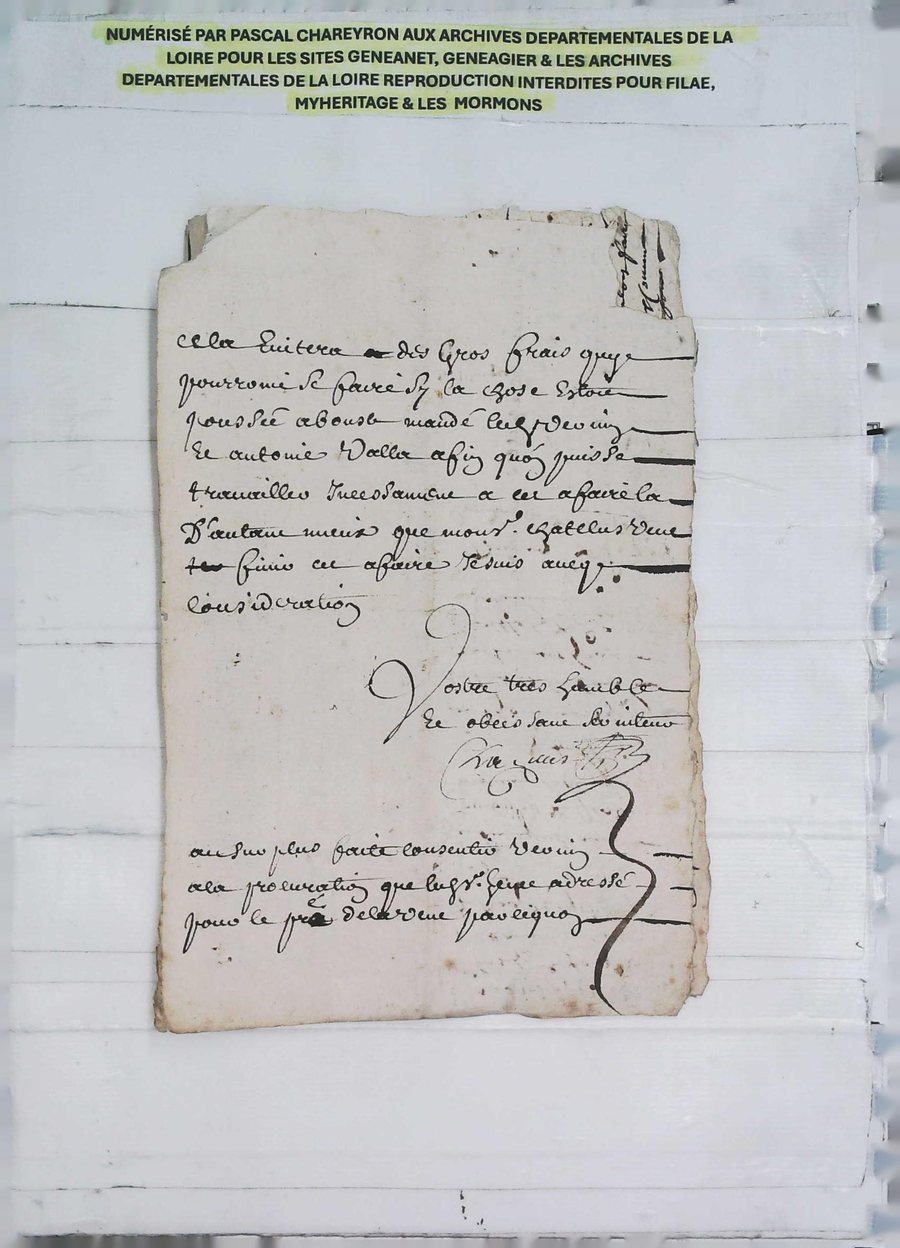 NUMÉRISÉ PAR PASCAL CHAREYRON AUX ARCHIVES DEPARTEMENTALES DE LA
LOIRE POUR LES SITES GENEANET, GENEAGIER & LES ARCHIVES
DEPARTEMENTALES DE LA LOIRE REPRODUCTION INTERDITES POUR FILAE,
MYHERITAGE & LES MORMONS
cela Evitera des Gros frais quy
pourroint se faire sy la chose Estoit
poussée a boust mandé
Et antoine Valla afin quon puisse
travailler Incessament a cet afaire la
D'autant mieux que monsr. chatelus veut
finir cet afaire Je suis aveq
Consideration
Vostre tres humble
Et obeissant serviteur
au surplus faite consentir
a la procuration que adressé
pour le de la